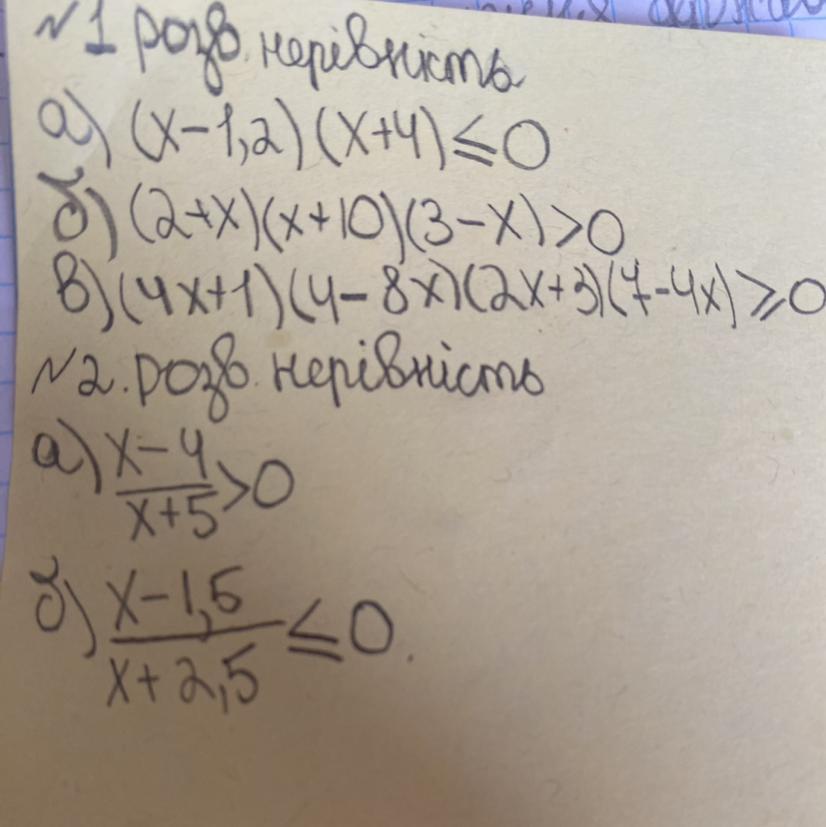 №1 розв. нерівність
а) (x-1,2)(x+4)≤0
б) (2+x)(x+10)(3-x)>0
в) (4x+1)(4-8x)(2x+3)(7-4x)≥0
№2. розв. нерівність
а) x-4/x+5>0
б) x-1,5/x+2,5≤0.